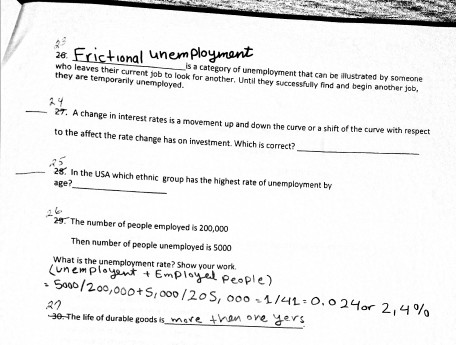 23
26. Frictional unemployment is a category of unemployment that can be illustrated by someone
who leaves their current job to look for another. Until they successfully find and begin another job,
they are temporarily unemployed.
24
27. A change in interest rates is a movement up and down the curve or a shift of the curve with respect
to the affect the rate change has on investment. Which is correct?
25
28. In the USA which ethnic group has the highest rate of unemployment by
age?
26
29. The number of people employed is 200,000
Then number of people unemployed is 5000
What is the unemployment rate? Show your work.
(unemployent + Employed People)
= 5000/200,000+5,000/205,000=1/41=0.024or 2,4%
27
30. The life of durable goods is more then one yers